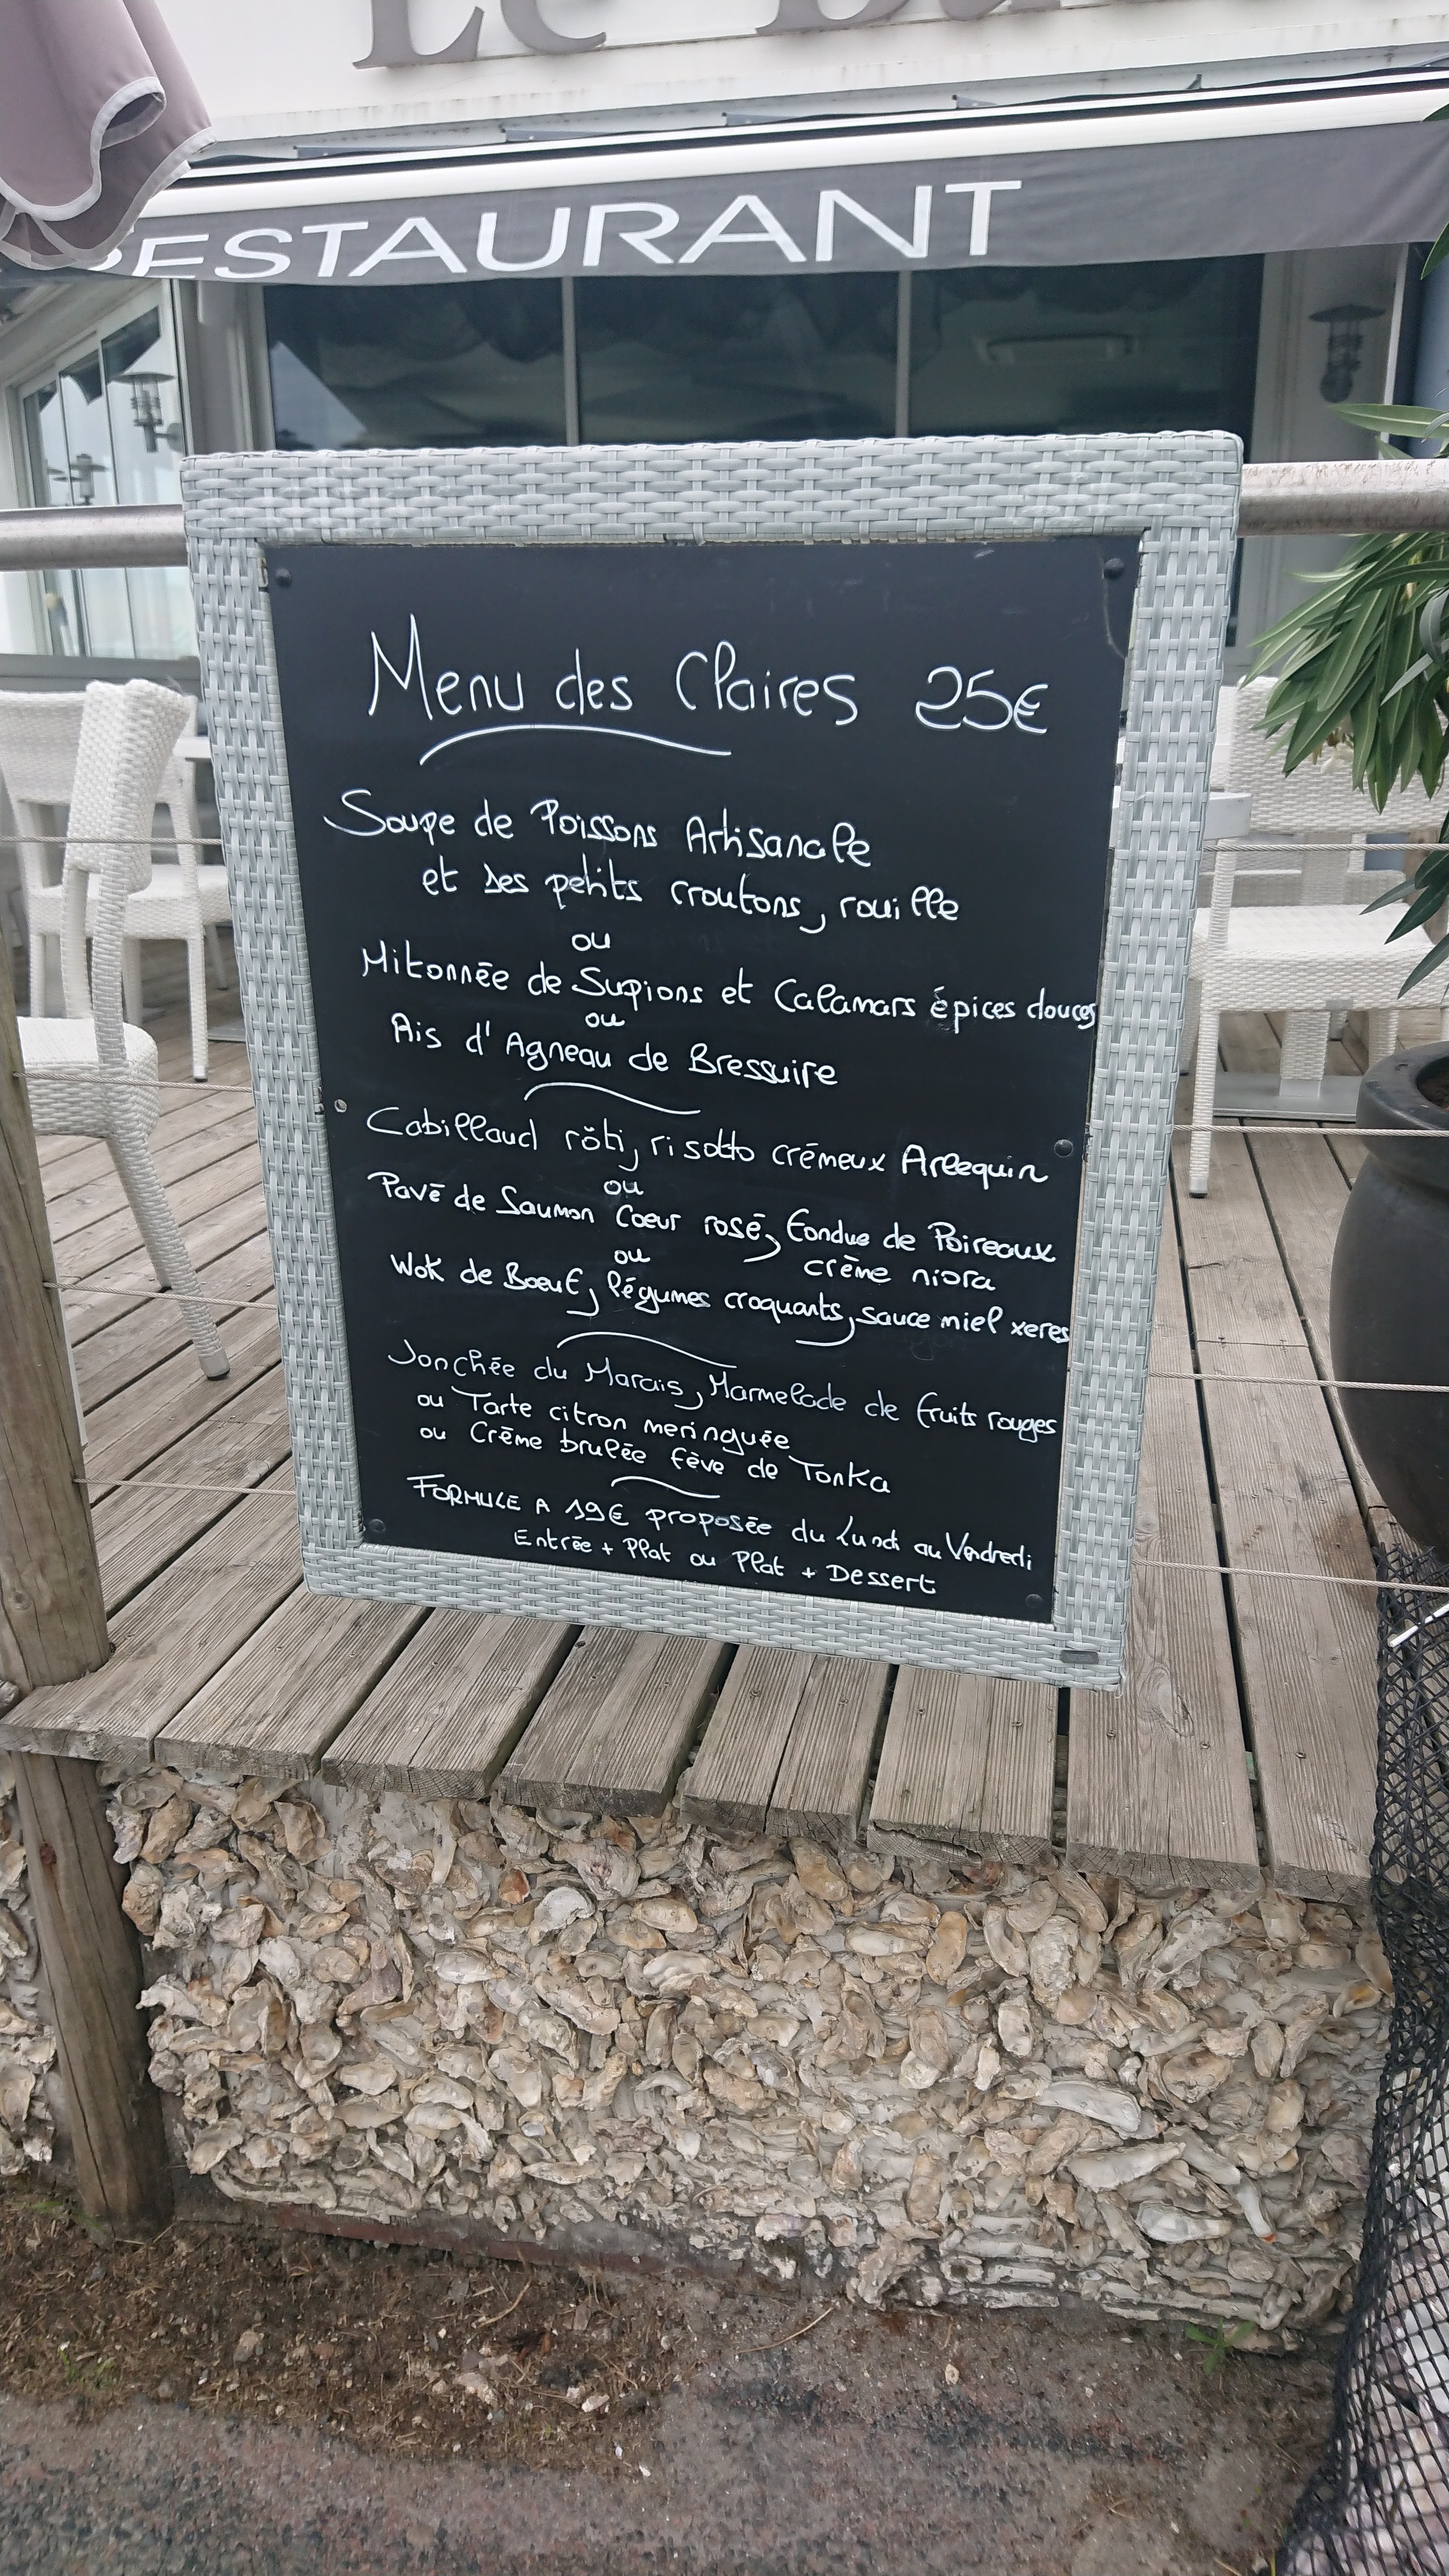 Le
RESTAURANT
Menu des Claires 25€
Soupe de Poissons Artisanale
et ses petits croutons, rouille
ou
Mitonnée de Supions et Calamars épices douces
ou
Ris d'Agneau de Bressuire
Cabillaud rôti, risotto crémeux Arlequin
ou
Pavé de Saumon Coeur rosé, fondue de Poireaux
crème niora
ou
Wok de Boeuf, légumes croquants, sauce miel xeres
Jonchée du Marais, Marmelade de fruits rouges
ou Tarte citron meringuée
ou Crème brulée fève de Tonka
FORMULE A 19€ proposée du Lundi au Vendredi
Entrée + Plat ou Plat + Dessert